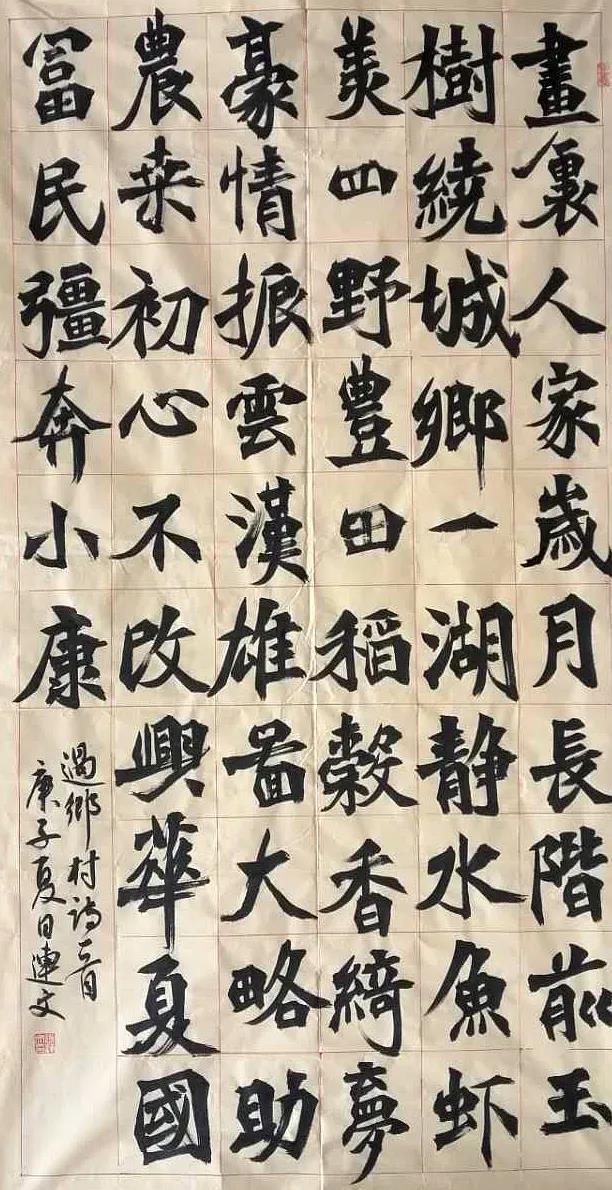 畫裏人家歲月長階前玉
樹繞城鄉一湖靜水魚虾
美四野豐田稻穀香綺夢
豪情振雲漢雄啚大略助
農桒初心不改興華夏國
冨民彊奔小康
過鄉村詩一首
庚子夏日連文